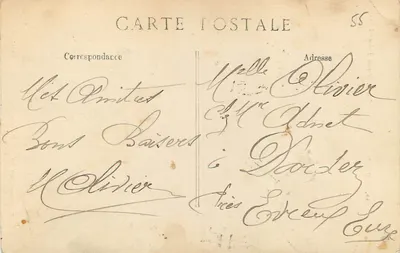 CARTE POSTALE
55
Correspondance
Mes Amitiés
Bons Baisers
H Olivier
Adresse
Melle Olivier
Chez Mr Adnet
à Dardez
Près Evreux Eure